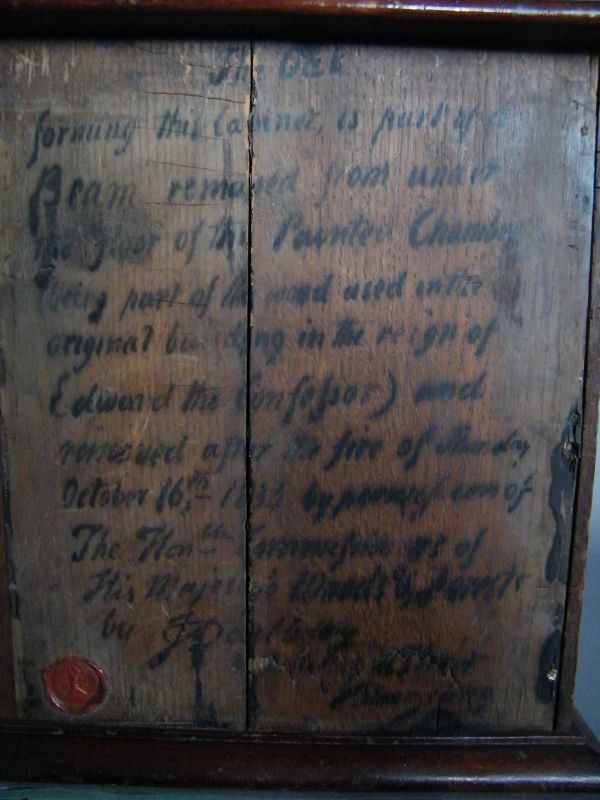 The Oak
forming this Cabinet, is part of a
Beam removed from under
the floor of the Painted Chamber
(being part of the wood used in the
original building in the reign of
Edward the Confessor) and
removed after the fire of Thursday
October 16th, 1834 by permission of
The Honble Commissioners of
His Majesty's Woods & Forests
by